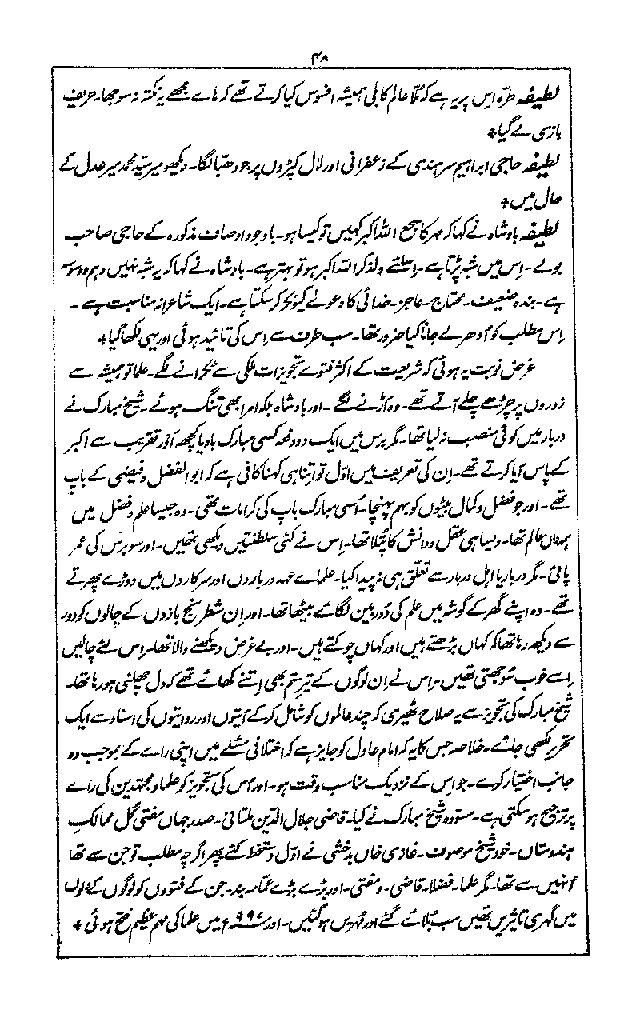 ۴۸
لطیفہ طرّہ اس پر یہ ہے کہ ملا عالم کابلی ہمیشہ افسوس کیا کرتے تھے کہ ہائے مجھے یہ نکتہ نہ سوجھا۔ حریف
بازی لے گیا +
لطیفہ حاجی ابراہیم سرہندی کے زعفرانی اور لال کپڑوں پر جو دھبّا لگا۔ دیکھو میر سیّد محمد میر عدل کے
حال میں +
لطیفہ بادشاہ نے کہا کہ مہر کا سجع اللہ اکبر کہیں تو کیسا ہو۔ باوجود اوصاف مذکورہ کے حاجی صاحب
بولے۔ اس میں شبہ پڑتا ہے۔ اسلئے ولذکر اللہ اکبر ہو تو بہتر ہے۔ بادشاہ نے کہا کہ یہ شبہ نہیں وہم و وسوسہ
ہے۔ بندہ ضعیف۔ محتاج۔ عاجز۔ خدائی کا دعوےٰ کیونکر کر سکتا ہے۔ ایک شاعرانہ مناسبت ہے۔
اس مطلب کو اُدھر لے جانا کیا ضرور تھا۔ سب طرف سے اس کی تائید ہوئی اور یہی لکھا گیا +
غرض نوبت یہ ہوئی کہ شریعت کے اکثر فتوے تجویزات ملکی سے ٹکرانے لگے۔ علما تو ہمیشہ سے
زوروں پر چڑھے چلے آتے تھے۔ وہ اَڑنے لگے۔ اور بادشاہ بلکہ امرا بھی تنگ ہوئے۔ شیخ مبارک نے
دربار میں کوئی منصب نہ لیا تھا۔ مگر برس میں ایک دو دفعہ کسی مبارک باد یا کچھ اور تقریب سے اکبر
کے پاس آیا کرتے تھے۔ ان کی تعریف میں اوّل تو اتنا ہی کہنا کافی ہے کہ ابوالفضل و فیضی کے باپ
تھے۔ اور جو فضل و کمال بیٹوں کو بہم پہنچا۔ اُسی مبارک باپ کی کرامات تھی۔ وہ جیسا علم و فضل میں
ہمہ دان عالم تھا۔ ویسا ہی عقل و دانش کا پُتلا تھا۔ اس نے کئی سلطنتیں دیکھی تھیں۔ اور سو برس کی عمر
پائی۔ مگر دربار یا اہل دربار سے تعلق ہی نہ پیدا کیا۔ علمائے عہد درباروں اور سرکاروں میں دوڑے پھرتے
تھے۔ وہ اپنے گھر کے گوشہ میں علم کی دُوربین لگائے بیٹھا تھا۔ اور ان شطرنج بازوں کے چالوں کو دور
سے دیکھ رہا تھا کہ کہاں بڑھتے ہیں اور کہاں چوکتے ہیں۔ اور بے غرض دیکھنے والا تھا۔ اس لئے چالیں
اسے خوب سُوجھتی تھیں۔ اس نے ان لوگوں کے تیر ستم بھی اتنے کھائے تھے کہ دل چھلنی ہو رہا تھا۔
شیخ مبارک کی تجویز سے یہ صلاح ٹھیری کہ چند عالموں کو شامل کر کے آیتوں اور روایتوں کی اسناد سے ایک
تحریر لکھی جائے۔ خلاصہ جس کا یہ کہ امام عادل کو جایز ہے کہ اختلافی مسئلے میں اپنی رائے کے بموجب وہ
جانب اختیار کرے۔ جو اس کے نزدیک مناسب وقت ہو۔ اور اس کی تجویز کو علما و مجتہدین کی رائے
پر ترجیح ہو سکتی ہے۔ مسودہ شیخ مبارک نے کیا۔ قاضی جلال الدین ملتانی۔ صدر جہاں مفتی کل ممالک
ہندوستان۔ خود شیخ موصوف۔ غازی خاں بدخشی نے اوّل دستخط کئے پھر اگرچہ مطلب تو جن سے تھا
اُنہیں سے تھا۔ مگر علما۔ فضلا۔ قاضی۔ مفتی۔ اور بڑے بڑے عمامہ بند۔ جن کے فتووں کو لوگوں کے دلوں
میں گہری تاثیریں تھیں سب بُلائے گئے اور مُہریں ہو گئیں۔ اور میں علما کی مہم عظیم فتح ہوئی +